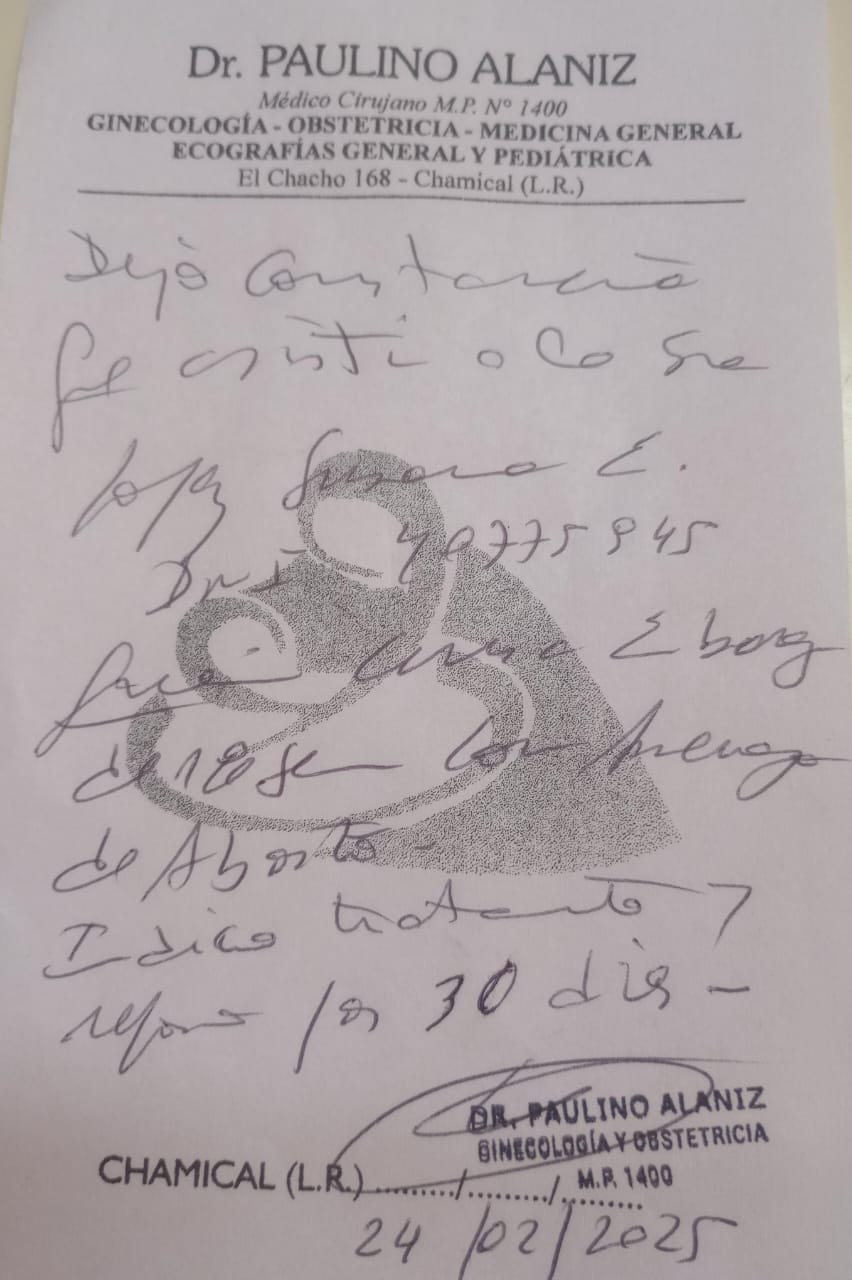 Dr. PAULINO ALANIZ
Médico Cirujano M.P. Nº 1400
GINECOLOGÍA - OBSTETRICIA - MEDICINA GENERAL
ECOGRAFÍAS GENERAL Y PEDIÁTRICA
El Chacho 168 - Chamical (L.R.)
Dejo Constancia
que asisti a la Sra
Lopez Susana E.
DNI 40775945
que cursa Embarazo
de 18 sem con Amenaza
de Aborto -
Indico tratamiento y
reposo por 30 dias -
DR. PAULINO ALANIZ
GINECOLOGÍA Y OBSTETRICIA
M.P. 1400
CHAMICAL (L.R.)........../........./.........
24/02/2025